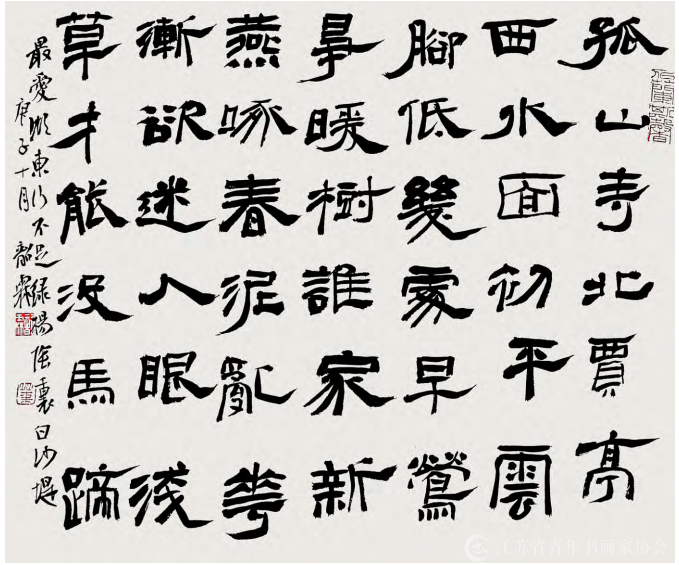 孤山寺北賈亭
西水面初平雲
腳低幾處早鶯
爭暖樹誰家新
燕啄春泥亂華
漸欲迷人眼淺
草才能沒馬蹄
最愛湖東行不足綠楊陰裏白沙堤
庚子十月
江苏省青年书画家协会